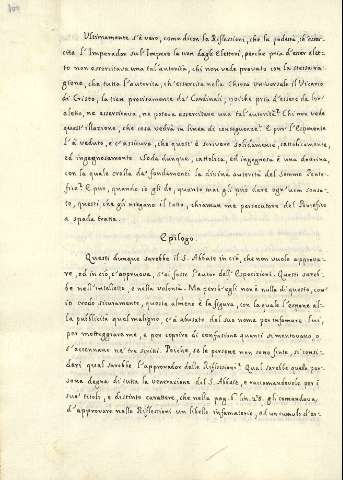 Ultimamente s'è vero, come dicon la Riflessioni, che la podestà, ch'eser-
cita l'Imperador sull'Impero la tien dagli Elettori, perché pria d'esser elet-
to non essercitava una tal'autorità, chi non vede provato con la stessa ra-
gione, che tutta l'autorità, ch'essercita nella Chiesa universale il Vicario
di Cristo, la tien provenuta da' Cardinali, poiché pria d'essere da lor
eletto, ne essercitava, ne poteva essercitare una tal'autorità? Chi non vede
quest'illazione, che cosa vedrà in linea di conseguenze? E pur l'Esponente
l'à veduto, e s'assicura, che quest'è scrivere sodamente, cattolicamente,
ed ingegnosamente. Soda dunque, cattolica, ed ingegnosa è una dottrina,
con la quale crolla da' fondamenti la divina autorità del Sommo Ponte-
fice? E pure, quando io gli do, quanto mai gli può dare ogn'uom sensa-
to, questi che gli niegano il tutto, chiaman me persecutore del Pontefice
a spada tratta.
Epilogo.
Questi dunque sarebbe il S. Abbate in ciò, che non vuole approva-
re, ed in ciò, ch'appruova, s'ei fosse l'autor dell'Esposizioni. Questi sareb-
be nell'intelletto, e nella volontà. Ma perch'egli non è nulla di questo, com'
io credo sicuramente, questa almeno è la figura, con la quale l'espone al-
la pubblicità quel maligno, ch'à abusato del suo nome per infamare lui,
per motteggiare me, e per coprire di confusione quanti si mentovano, o
s'accennano ne' tre scritti. Poiché, se le persone non sono finte, si consi-
deri qual sarebbe l'approvador delle Riflessioni? Qual sarebbe quella per-
sona degna di tutta la venerazione del S. Abbate, e raccomandevole per i
suoi titoli, e distinto carattere, che nella pag. 6. lin. 28. gli comandava,
d'approvare nelle Riflessioni un libello infamatorio, ed un cumulo d'er-